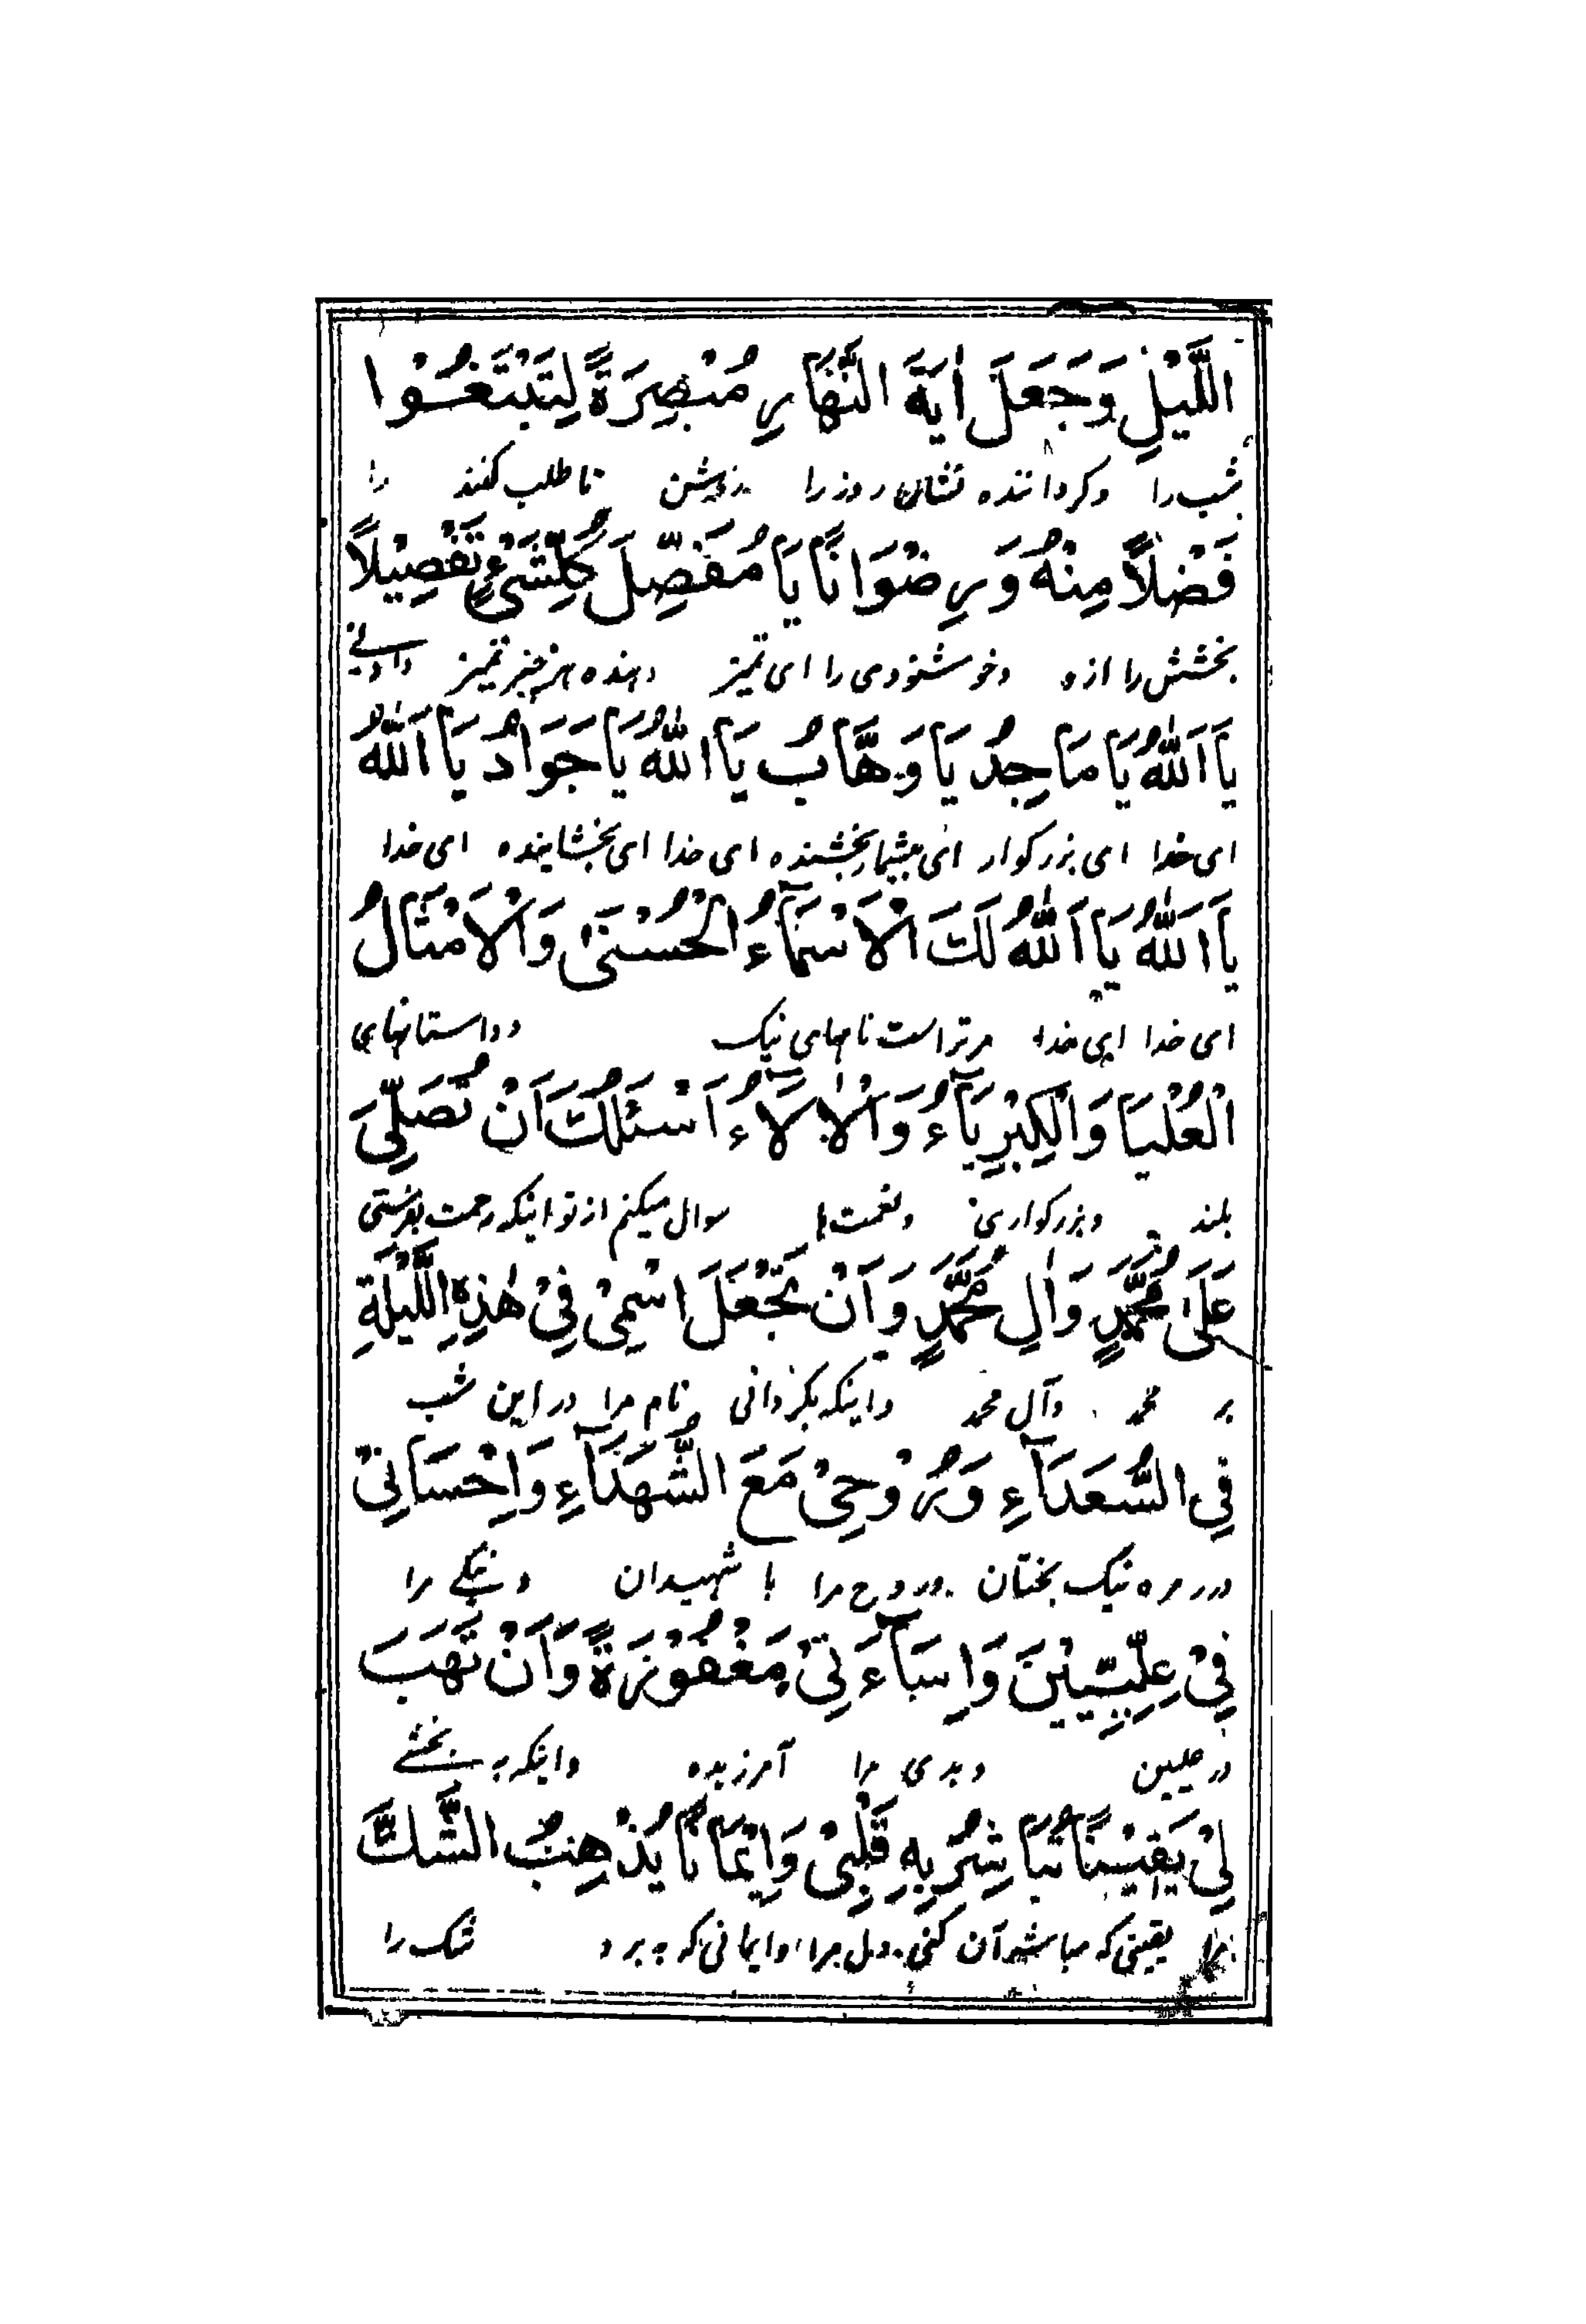 اللَّيْلِ وَجَعَلَ اٰيَةَ النَّهَارِ مُبْصِرَةً لِتَبْتَغُوْا
شب را وگرداننده نشان روز را روشن تا طلب کنند را
فَضْلاً مِنْهُ وَرِضْوَانًا يَا مُفَصِّلَ كُلِّشَيْءٍ تَفْصِيْلاً
بخشش را ازو وخوشنودی را ای تمیز دهنده هر چیز تمیز دادنی
يَآ اَللّٰهُ يَا مَاجِدُ يَا وَهَّابُ يَا اللّٰهُ يَا جَوَادُ يَا اَللّٰهُ
ای خدا ای بزرگوار ای بیشمار بخشنده ای خدا ای بخشاینده ای خدا
يَآ اَللّٰهُ يَآ اَللّٰهُ لَكَ الْاَسْمَآءُ الْحُسْنىٰ وَالْاَمْثَالُ
ای خدا ای خدا مر تراست نامهای نیک و داستانهای
الْعُلْيَا وَالْكِبْرِيَآءُ وَالْاٰلَآءُ اَسْئَلُكَ اَنْ تُصَلِّيَ
بلند وبزرگواری ونعمت ها سوال میکنم از تو اینکه رحمت بفرستی
عَلىٰ مُحَمَّدٍ وَاٰلِ مُحَمَّدٍ وَاَنْ تَجْعَلَ اسْمِيْ فِيْ هٰذِهِ اللَّيْلَةِ
بر محمد وآل محمد واینکه بگردانی نام مرا در این شب
فِي السُّعَدَآءِ وَرُوْحِيْ مَعَ الشُّهَدَآءِ وَاِحْسَانِيْ
در زمره نیک بختان وروح مرا با شهیدان ونیکے مرا
فِيْ عِلِّيِّيْنَ وَاِسَآءَتِيْ مَغْفُوْرَةً وَاَنْ تَهَبَ
در علیین وبدی مرا آمرزیده واینکه به بخشے
لِيْ يَقِيْنًا تُبَاشِرُ بِهِ قَلْبِيْ وَاِيْمَانًا يُذْهِبُ الشَّكَّ
مرا یقینی که مباشر آن کنی دل مرا وایمانی که به برد شک را